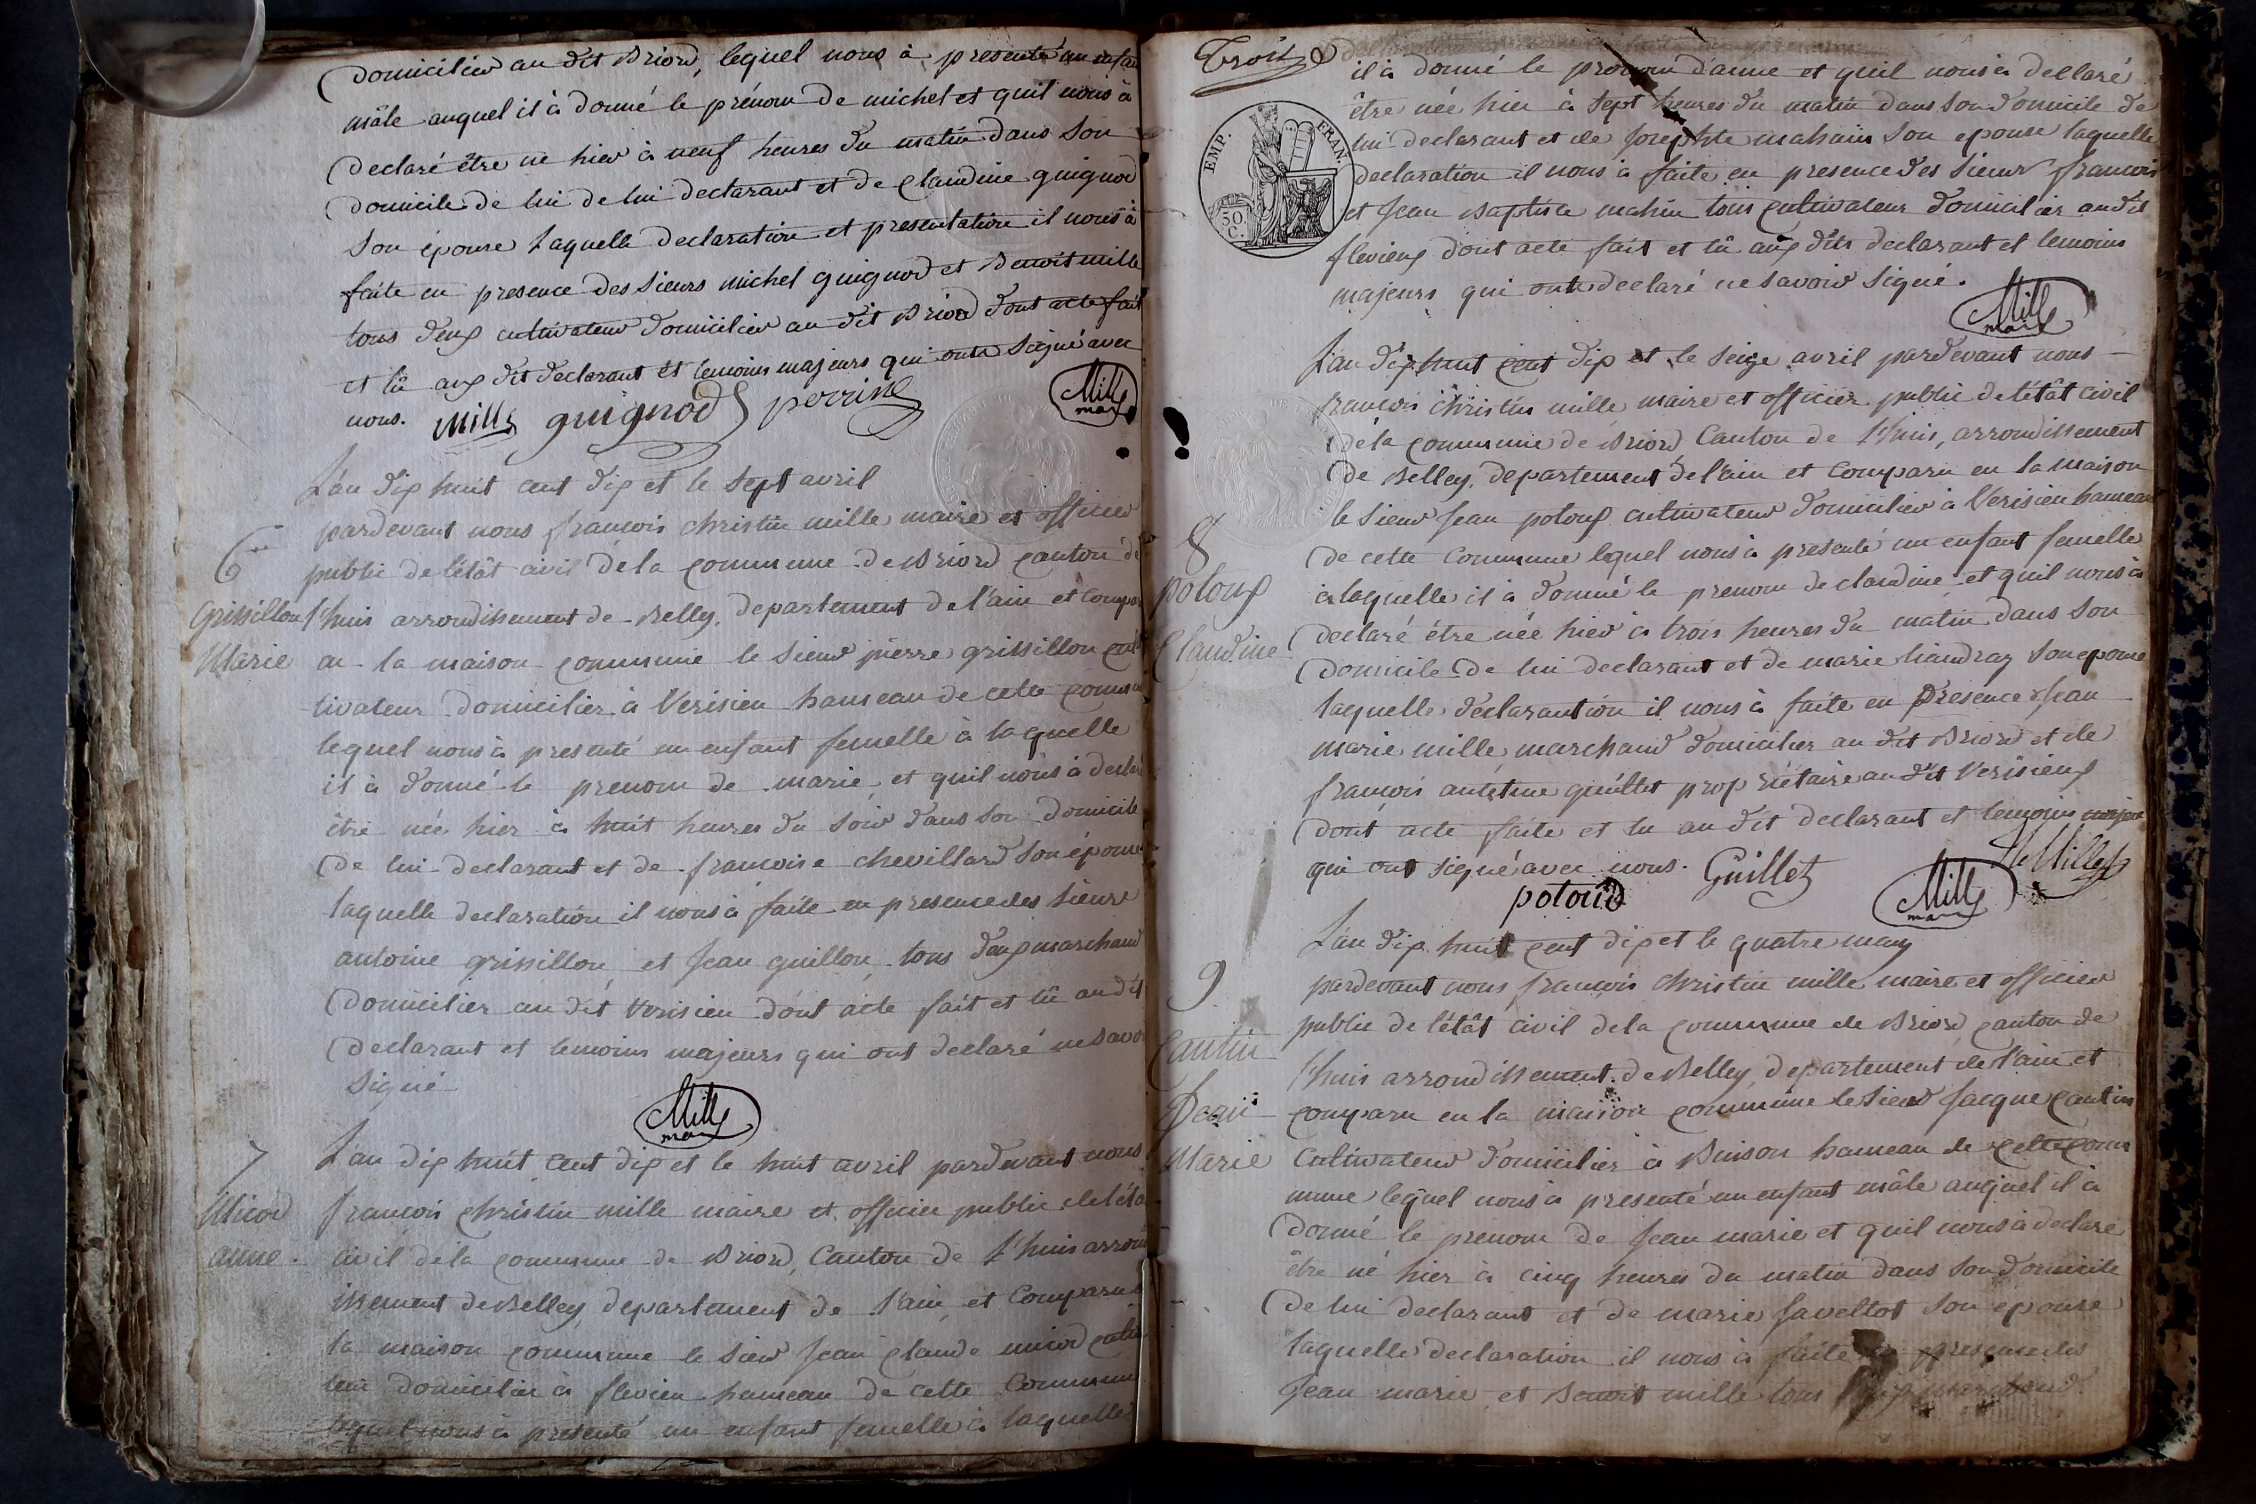 domicilier au dit Briord, lequel nous à presenté un enfan
mâle auquel il à donné le prénom de michel et quil nous à
declaré être né hier à neuf heures du matin dans son
domicile de lui de lui declarant et de Claudine guignod
son épouse laquelle declaration et presentation il nous à
faite en presence des sieurs michel guignod et Benoit mille
tous deux cultivateur domicilier au dit Briord dont acte fait
et lû aux dit declarant et temoins majeurs qui onts signé avec
nous. Mille guignod perrin Mille
maire
L'an dix huit cent dix et le sept avril
pardevant nous françois christin mille maire et officier
6
public de l'étât civil dela commune de Briord canton de
Grissillon l'huis arrondissement de Belley, departement de l'ain et compar
Marie en la maison commune le sieur pierre grissillon cul
tivateur domicilier à Verisieu hameau de cette commu
lequel nous à presenté un enfant femelle à laquelle
il à donné le prenom de marie et quil nous à declaré
être née hier à huit heures du soir dans son domicile
de lui declarant et de françoise chevillard son épouse
laquelle declaration il nous à faite en presence des sieurs
antoine grissillon et Jean guillon tous deux marchand
domicilier au dit Verisieu dont acte fait et lû au dit
declarant et temoins majeurs qui ont declaré ne savoir
signé
Mille
maire
7
L'an dix huit cent dix et le huit avril pardevant nous
Micod françois christin mille maire et officier public de l'éta
anne. civil dela commune de Briord, Canton de l'huis arron
issement de Belley, departement de l'ain et Comparu
la maison commune le sieur Jean Claude micod culti
teur domicilier à flevieu hameau de cette Commune
lequel nous à presenté un enfant femelle à laquelle
Trois
il à donné le prenom d'anne et quil nous à declaré
être née hier à sept heures du matin dans son domicile de
lui declarant et de Josephte mahain son epouse laquelle
declaration il nous à faite en presence des sieurs françois
et Jean Baptiste mahin tous cultivateur domicilier au dit
flevieux dont acte fait et lû aux dits declarant et temoins
majeurs qui onts declaré ne savoir signé.
EMP. FRAN.
50
C.
Mille
maire
L'an dix huit cent dix et le seize avril pardevant nous
françois christin mille maire et officier public de l'étât civil
dela commune de Briord Canton de l'huis, arrondissement
de Belley, departement de l'ain et Comparu en la maison
le sieur Jean poloux cultivateur domicilier à Verisieu hameau
8
de cette Commune lequel nous à presenté un enfant femelle
poloux à laquelle il à donné le prenom de claudine et quil nous à
declaré être née hier à trois heures du matin dans son
Claudine domicile de lui declarant et de marie liaudraz son epouse
laquelle declarantion il nous à faite en presence de Jean
marie mille marchand domicilier au dit Briord et de
françois antelme guillet proprietaire au dit Verisieux
dont acte faite et lu au dit declarant et temoins majeur
qui ont signé avec nous. Guillet JM Mille
poloud Mille
maire
L'an dix huit cent dix et le quatre may
9
pardevant nous françois christin mille maire et officier
public de l'étât civil dela commune de Briord canton de
Cantin l'huis arrondissement de Belley, departement de l'ain et
Jean comparu en la maison commune le sieur Jacque cantin
Marie cultivateur domicilier à Buison hameau de cette com
mune lequel nous à presenté un enfant mâle auquel il à
donné le prenom de Jean marie et quil nous à declaré
être né hier à cinq heures du matin dans son domicile
de lui declarant et de marie savettot son epouse
laquelle declaration il nous à faite en presence des
Jean marie et Benoit mille tous deux marchand